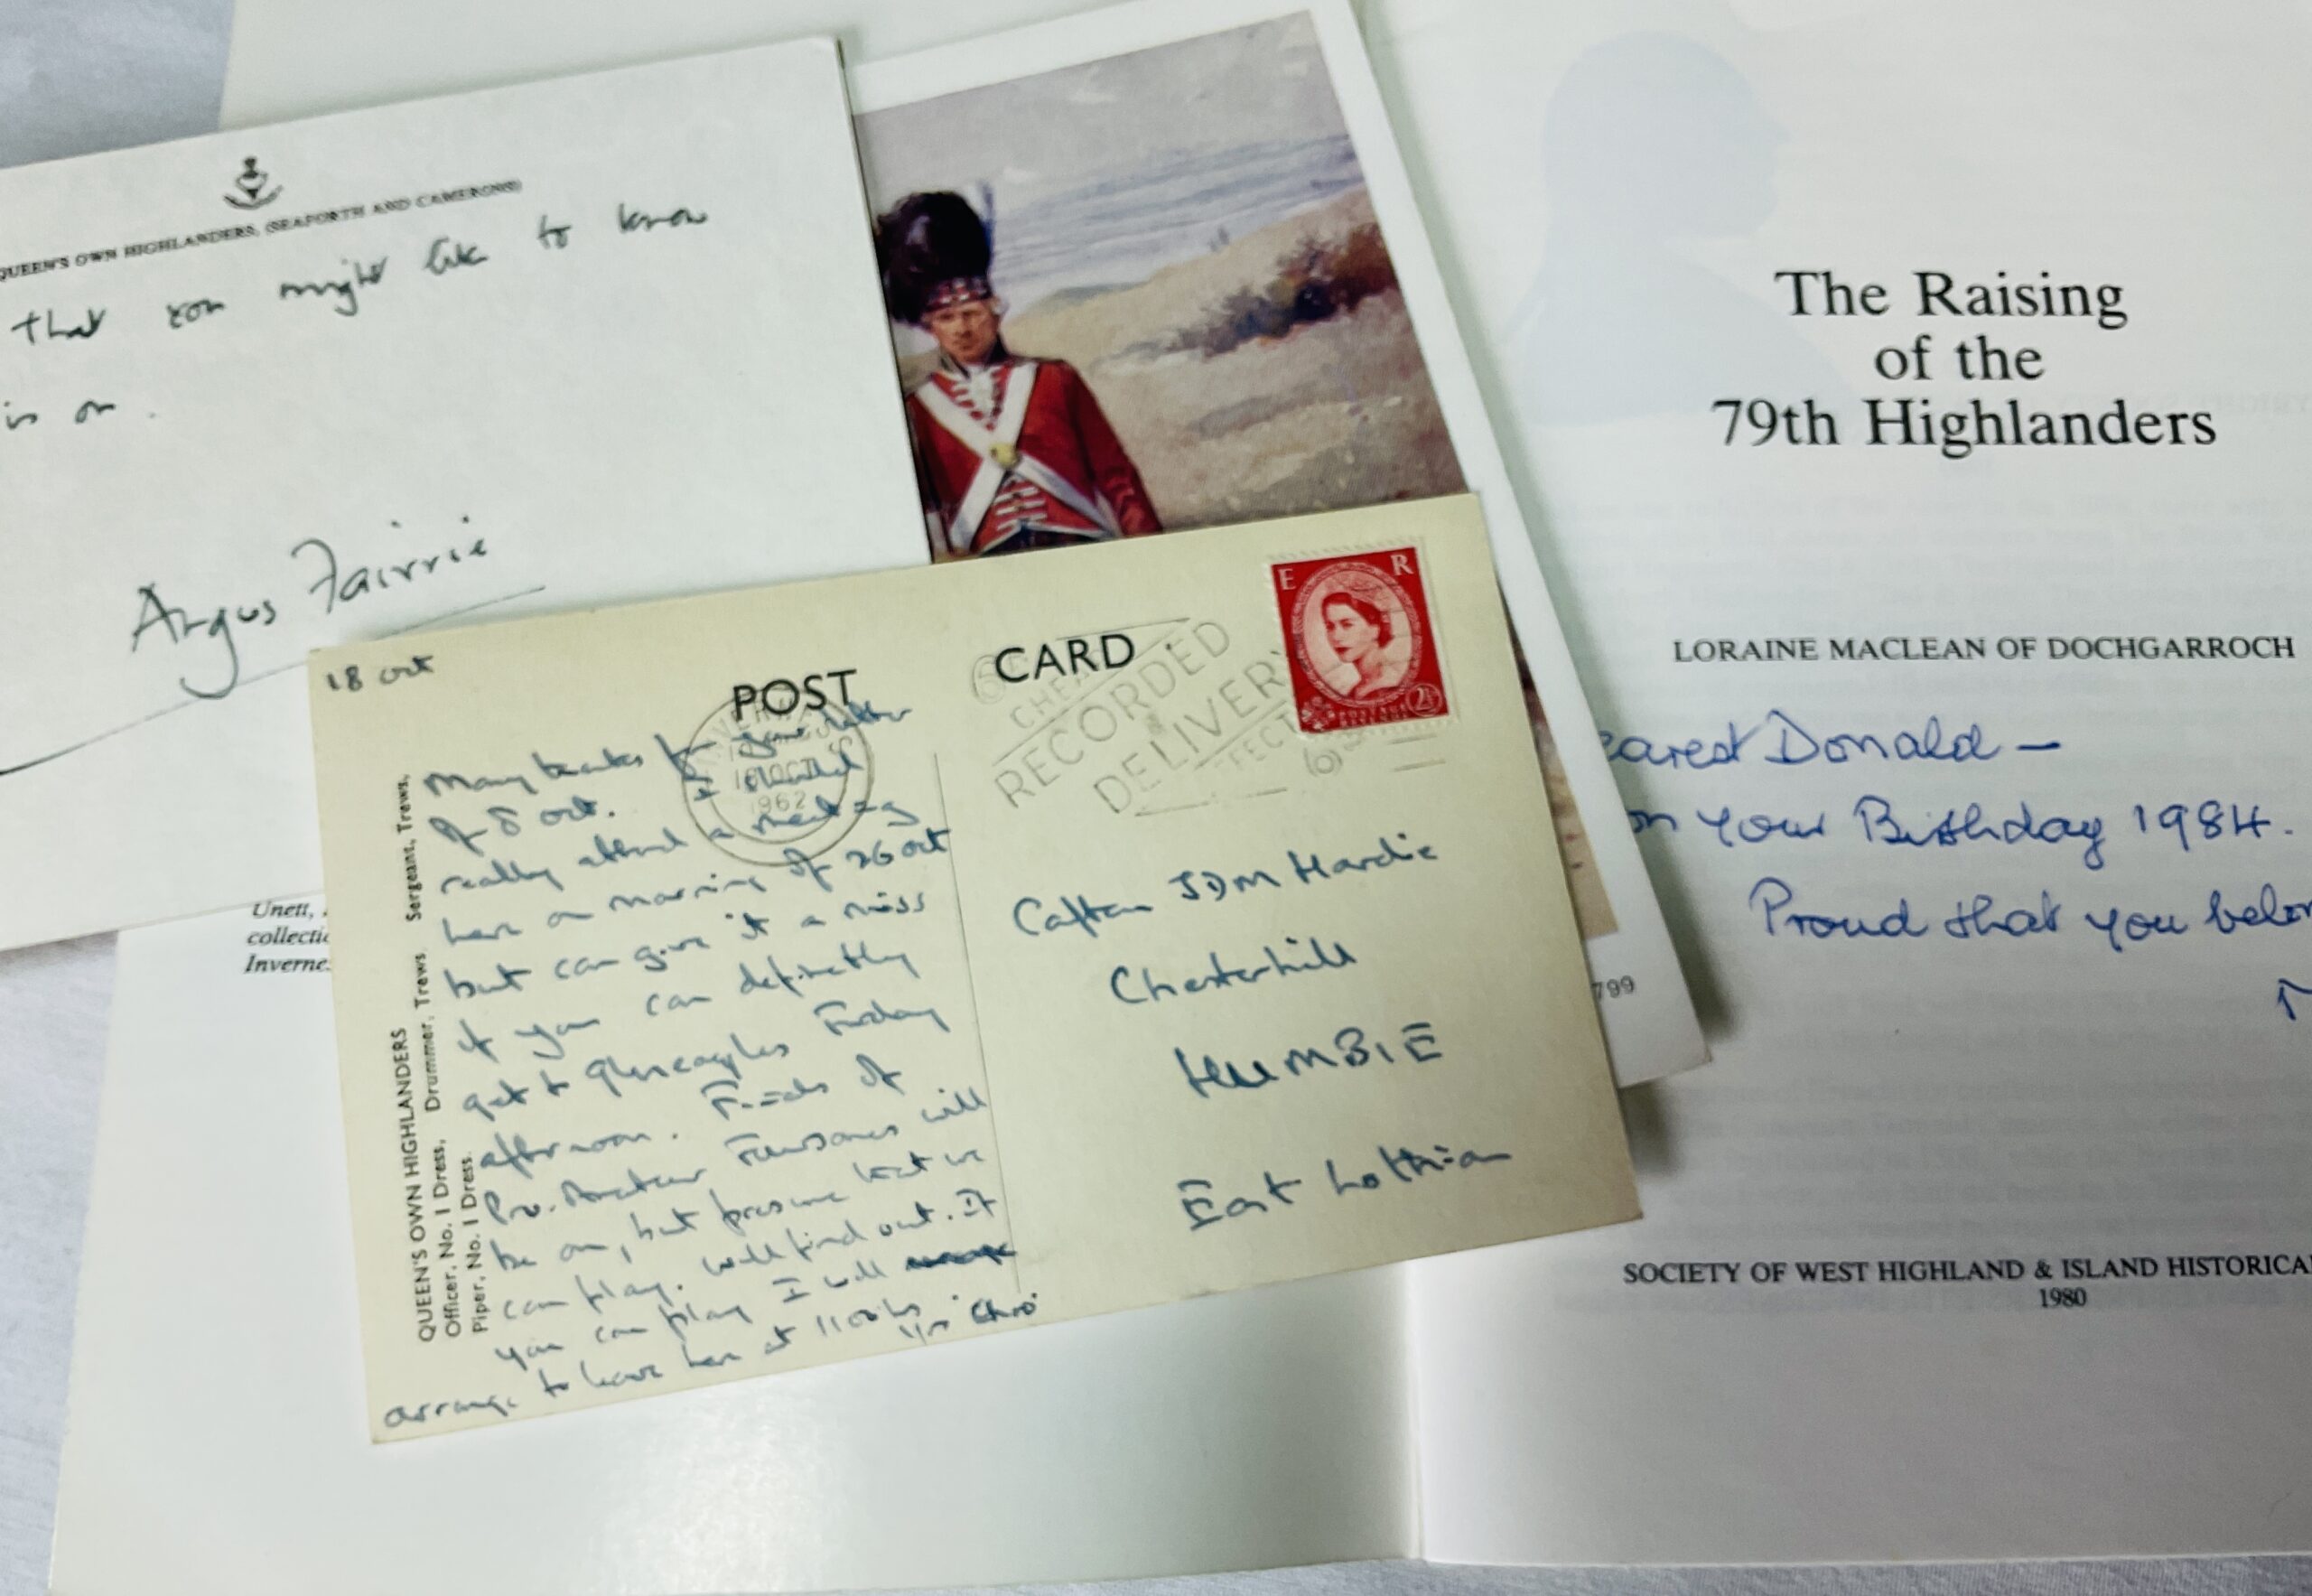 QUEEN'S OWN HIGHLANDERS, (SEAFORTH AND CAMERONS)
that you might like to know
is on.
Argus Fairrie
Unett,
collectio
Inverne
18 Oct
POST CARD
Many thanks for your letter
of 8 Oct. I should
really attend a meeting
here on morning of 26 Oct
but can give it a miss
if you can definitely
get to Gleneagles Friday
afternoon. Finals of
Pro. Amateur Foursomes will
be on, but presume that we
can play. Will find out. If
you can play I will
arrange to leave here at 1100 hrs.
QUEEN'S OWN HIGHLANDERS
Officer, No. 1 Dress, Drummer, Trews Sergeant, Trews.
Piper, No. 1 Dress.
18 OCT
1962
RECORDED
DELIVERY
E R
POSTAGE
REVENUE
2½
Captain JDM Hardie
Chesterhill
HUMBIE
East Lothian
799
The Raising
of the
79th Highlanders
LORAINE MACLEAN OF DOCHGARROCH
earest Donald –
on your Birthday 1984.
Proud that you belon
SOCIETY OF WEST HIGHLAND & ISLAND HISTORICA
1980